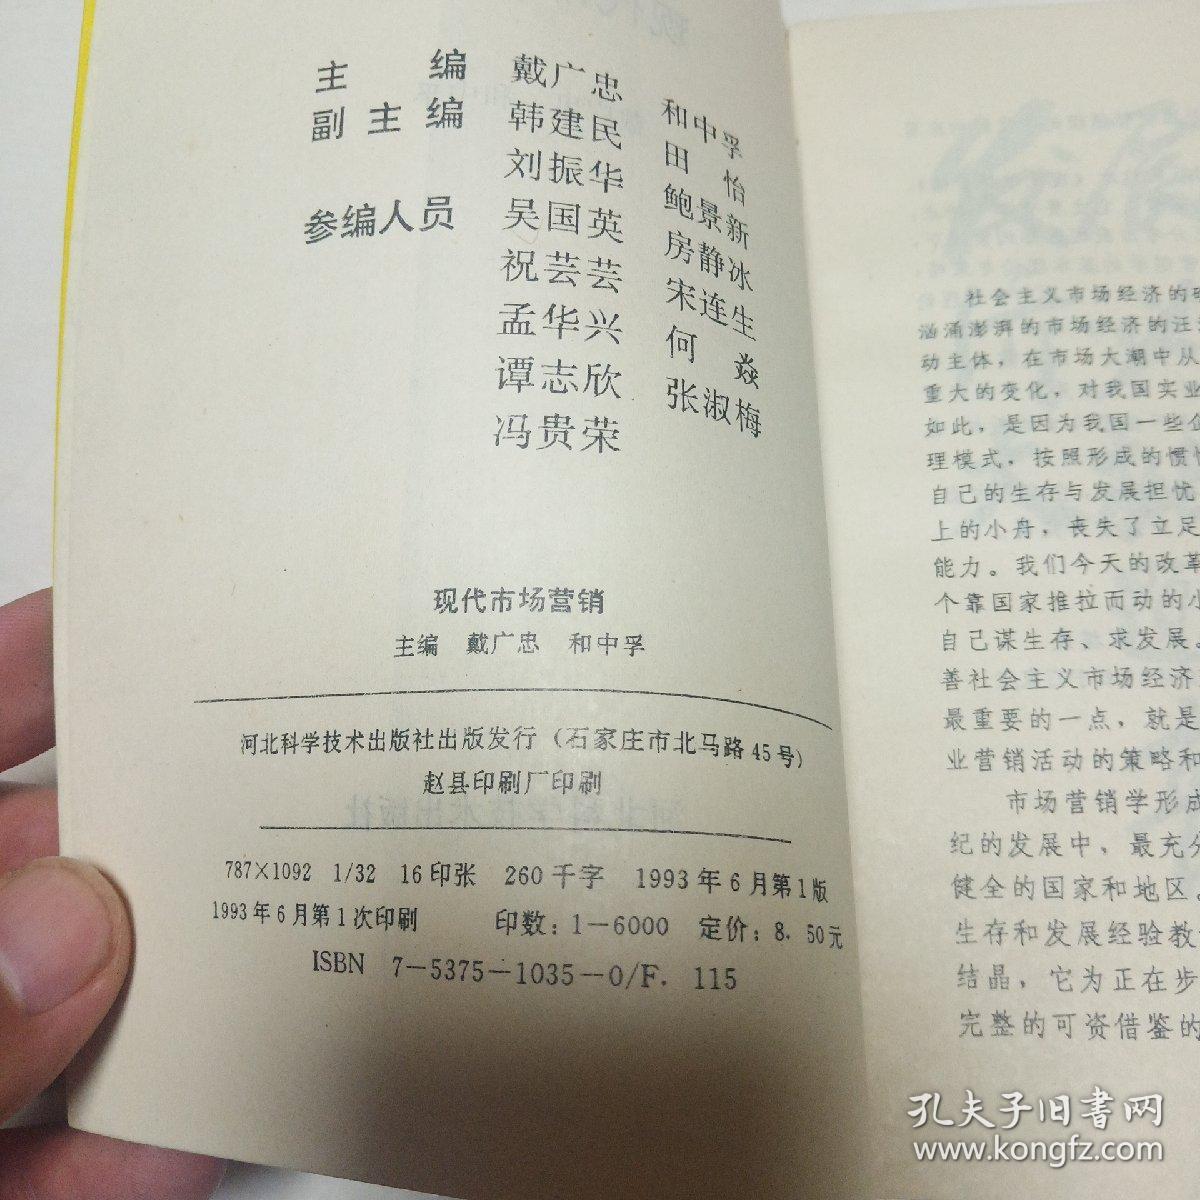 主编 戴广忠 和中孚
副主编 韩建民 田怡
刘振华 鲍景新
参编人员 吴国英 房静冰
祝芸芸 宋连生
孟华兴 何焱
谭志欣 张淑梅
冯贵荣
现代市场营销
主编 戴广忠 和中孚
河北科学技术出版社出版发行（石家庄市北马路45号）
赵县印刷厂印刷
787×1092 1/32 16印张 260千字 1993年6月第1版
1993年6月第1次印刷 印数：1—6000 定价：8.50元
ISBN 7—5375—1035—0/F．115
社会主义市场经济的
汹涌澎湃的市场经济的汪
动主体，在市场大潮中从
重大的变化，对我国实业
如此，是因为我国一些企
理模式，按照形成的惯
自己的生存与发展担忧
上的小舟，丧失了立足
能力。我们今天的改革
个靠国家推拉而动的小
自己谋生存、求发展。
善社会主义市场经济
最重要的一点，就是
业营销活动的策略和
市场营销学形成
纪的发展中、最充分
健全的国家和地区
生存和发展经验教
结晶，它为正在步
完整的可资借鉴的
孔夫子旧书网
www.kongfz.com